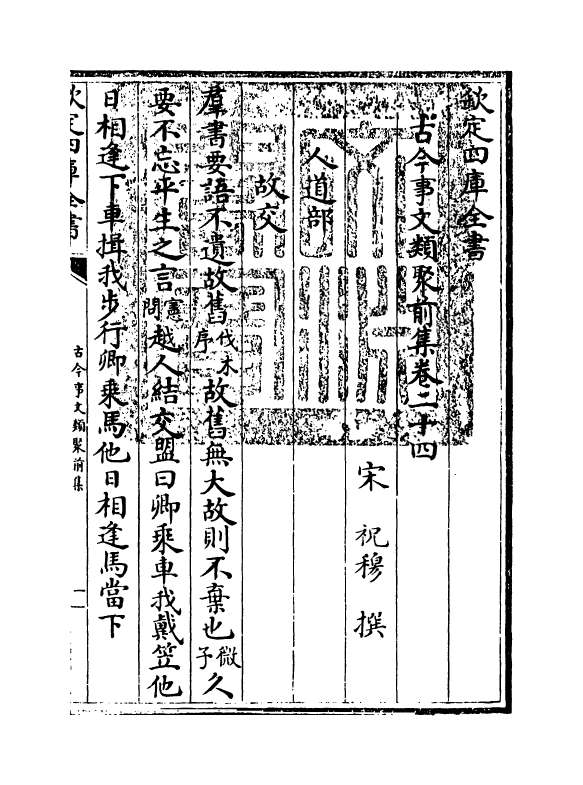 欽定四庫全書
古今事文類聚前集卷二十四
宋 祝穆 撰
人道部
故交
羣書要語不遺故舊伐木序故舊無大故則不棄也微子久
要不忘平生之言憲問越人結交盟曰卿乘車我戴笠他
日相逢下車揖我步行卿乘馬他日相逢馬當下
欽定四庫全書
古今事文類聚前集